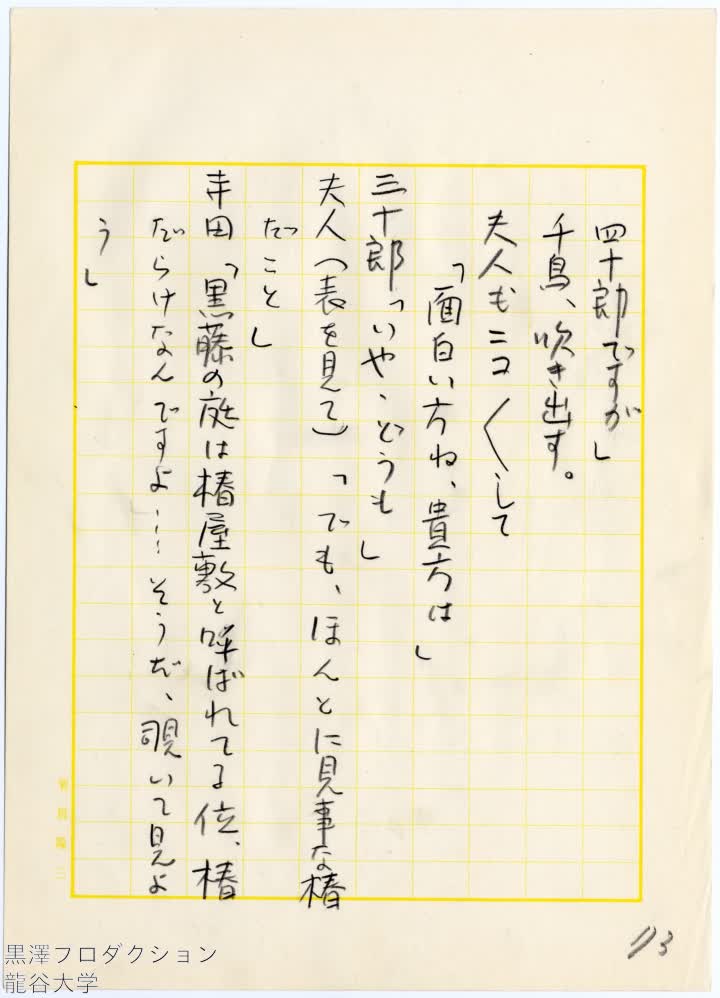 四十郎ですが」
千鳥、吹き出す。
夫人もニコ〱して
「面白い方ね、貴方は」
三十郎「いや、どうも」
夫人（表を見て）「でも、ほんとに見事な椿
だこと」
寺田「黒藤の庭は椿屋敷と呼ばれてる位、椿
だらけなんですよ……そうだ、覗いて見よ
う」
113
黒澤プロダクション
龍谷大学